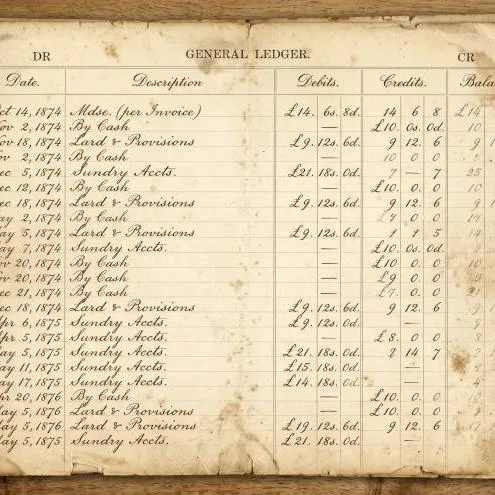 DR GENERAL LEDGER. CR
Date. Description Debits. Credits. Bala
ct 14, 1874 Mdse. (per Invoice) £14. 6s. 8d. 14 6 8 £14
ov 2, 1874 By Cash — £10. 0s. 0d. 10
ov 18, 1874 Lard & Provisions £9. 12s. 6d. 9 12. 6 9 1
ov 2, 1874 By Cash — 10 0 0
ec 5, 1874 Sundry Accts. £21. 18s. 0d. 7 — 7 25
ec 12, 1874 By Cash — £10. 0. 0 10
ec 18, 1874 Lard & Provisions £9. 12s. 6d. 9 12. 6 9 1
ay 2, 1874 By Cash — 0 0
ay 5, 1874 Lard & Provisions £9. 12s. 6d. 1 1 5 14
ay 7, 1874 Sundry Accts. — £10. 0s. 0d.
ov 20, 1874 By Cash — £10 0. 0 10
ov 20, 1874 By Cash — £9 0. 0
ec 21, 1874 By Cash — £7. 0 0
ec 18, 1874 Lard & Provisions £9. 12s. 6d. 9 12. 6 9
pr 6, 1875 Sundry Accts. £9. 12s. 0d. —
pr 5, 1875 Sundry Accts. — £8. 0 0 8
ay 5, 1875 Sundry Accts. £21. 18s. 0d. 7 14 7
ay 11, 1875 Sundry Accts. £15. 18s. 0d. —
ay 17, 1875 Sundry Accts. £14. 18s. 0d. —
pr 20, 1876 By Cash — £10. 0. 0
ay 5, 1876 Lard & Provisions — £10. 0. 0
ay 5, 1876 Lard & Provisions £19. 12s. 6d. 9 12. 6
ay 5, 1875 Sundry Accts. £21. 18s. 0d. —